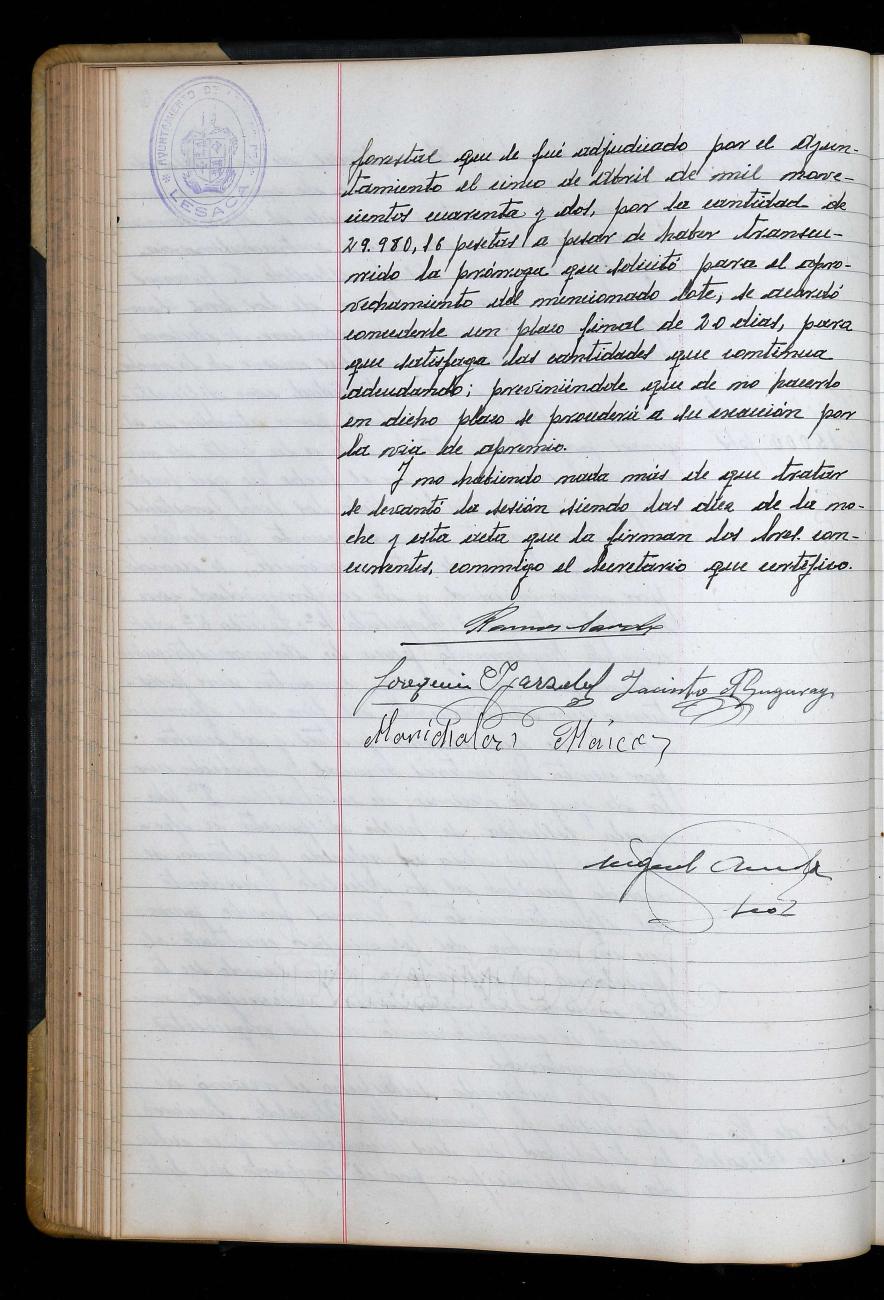 AYUNTAMIENTO DE
LESACA
forestal que le fué adjudicado por el Ayun-
tamiento el cinco de Abril de mil nove-
cientos cuarenta y dos, por la cantidad de
29.980,16 pesetas a pesar de haber transcu-
rrido la prórroga que solicitó para el apro-
vechamiento del mencionado lote, se acordó
concederle un plazo final de 20 dias, para
que satisfaga las cantidades que continua
adeudando; previniéndole que de no hacerlo
en dicho plazo se procederá a su exacción por
la via de apremio.
Y no habiendo nada más de que tratar
se levantó la sesión siendo las diez de la no-
che y esta acta que la firman los Sres. con-
currentes, conmigo el Secretario que certifico.
Ramon
Joaquin Jacinto
Miguel